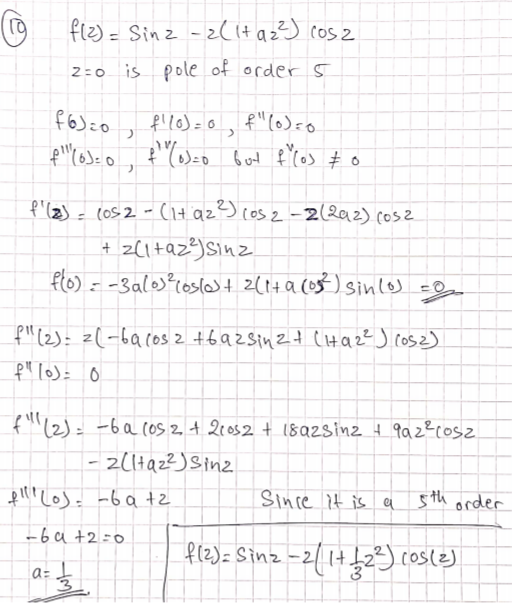 10
f(z) = Sin z - z(1+az²) cos z
z=0 is pole of order 5
f(0)=0 , f'(0)=0 , f''(0)=0
f'''(0)=0 , f''''(0)=0 but fᵛ(0) ≠ 0
f'(z) = cos z - (1+az²) cos z - z(2az) cos z
+ z(1+az²) sin z
f(0) = -3a(0)² cos(0) + z(1+a(0)²) sin(0) = 0
f''(z) = z(-6a cos z + 6az sin z + (1+az²) cos z)
f''(0) = 0
f'''(z) = -6a cos z + 2cos z + 18az sin z + 9az² cos z
- z(1+az²) sin z
f'''(0) = -6a + 2 Since it is a 5th order
-6a + 2 = 0
f(z) = Sin z - z(1 + 1/3 z²) cos(z)
a = 1/3